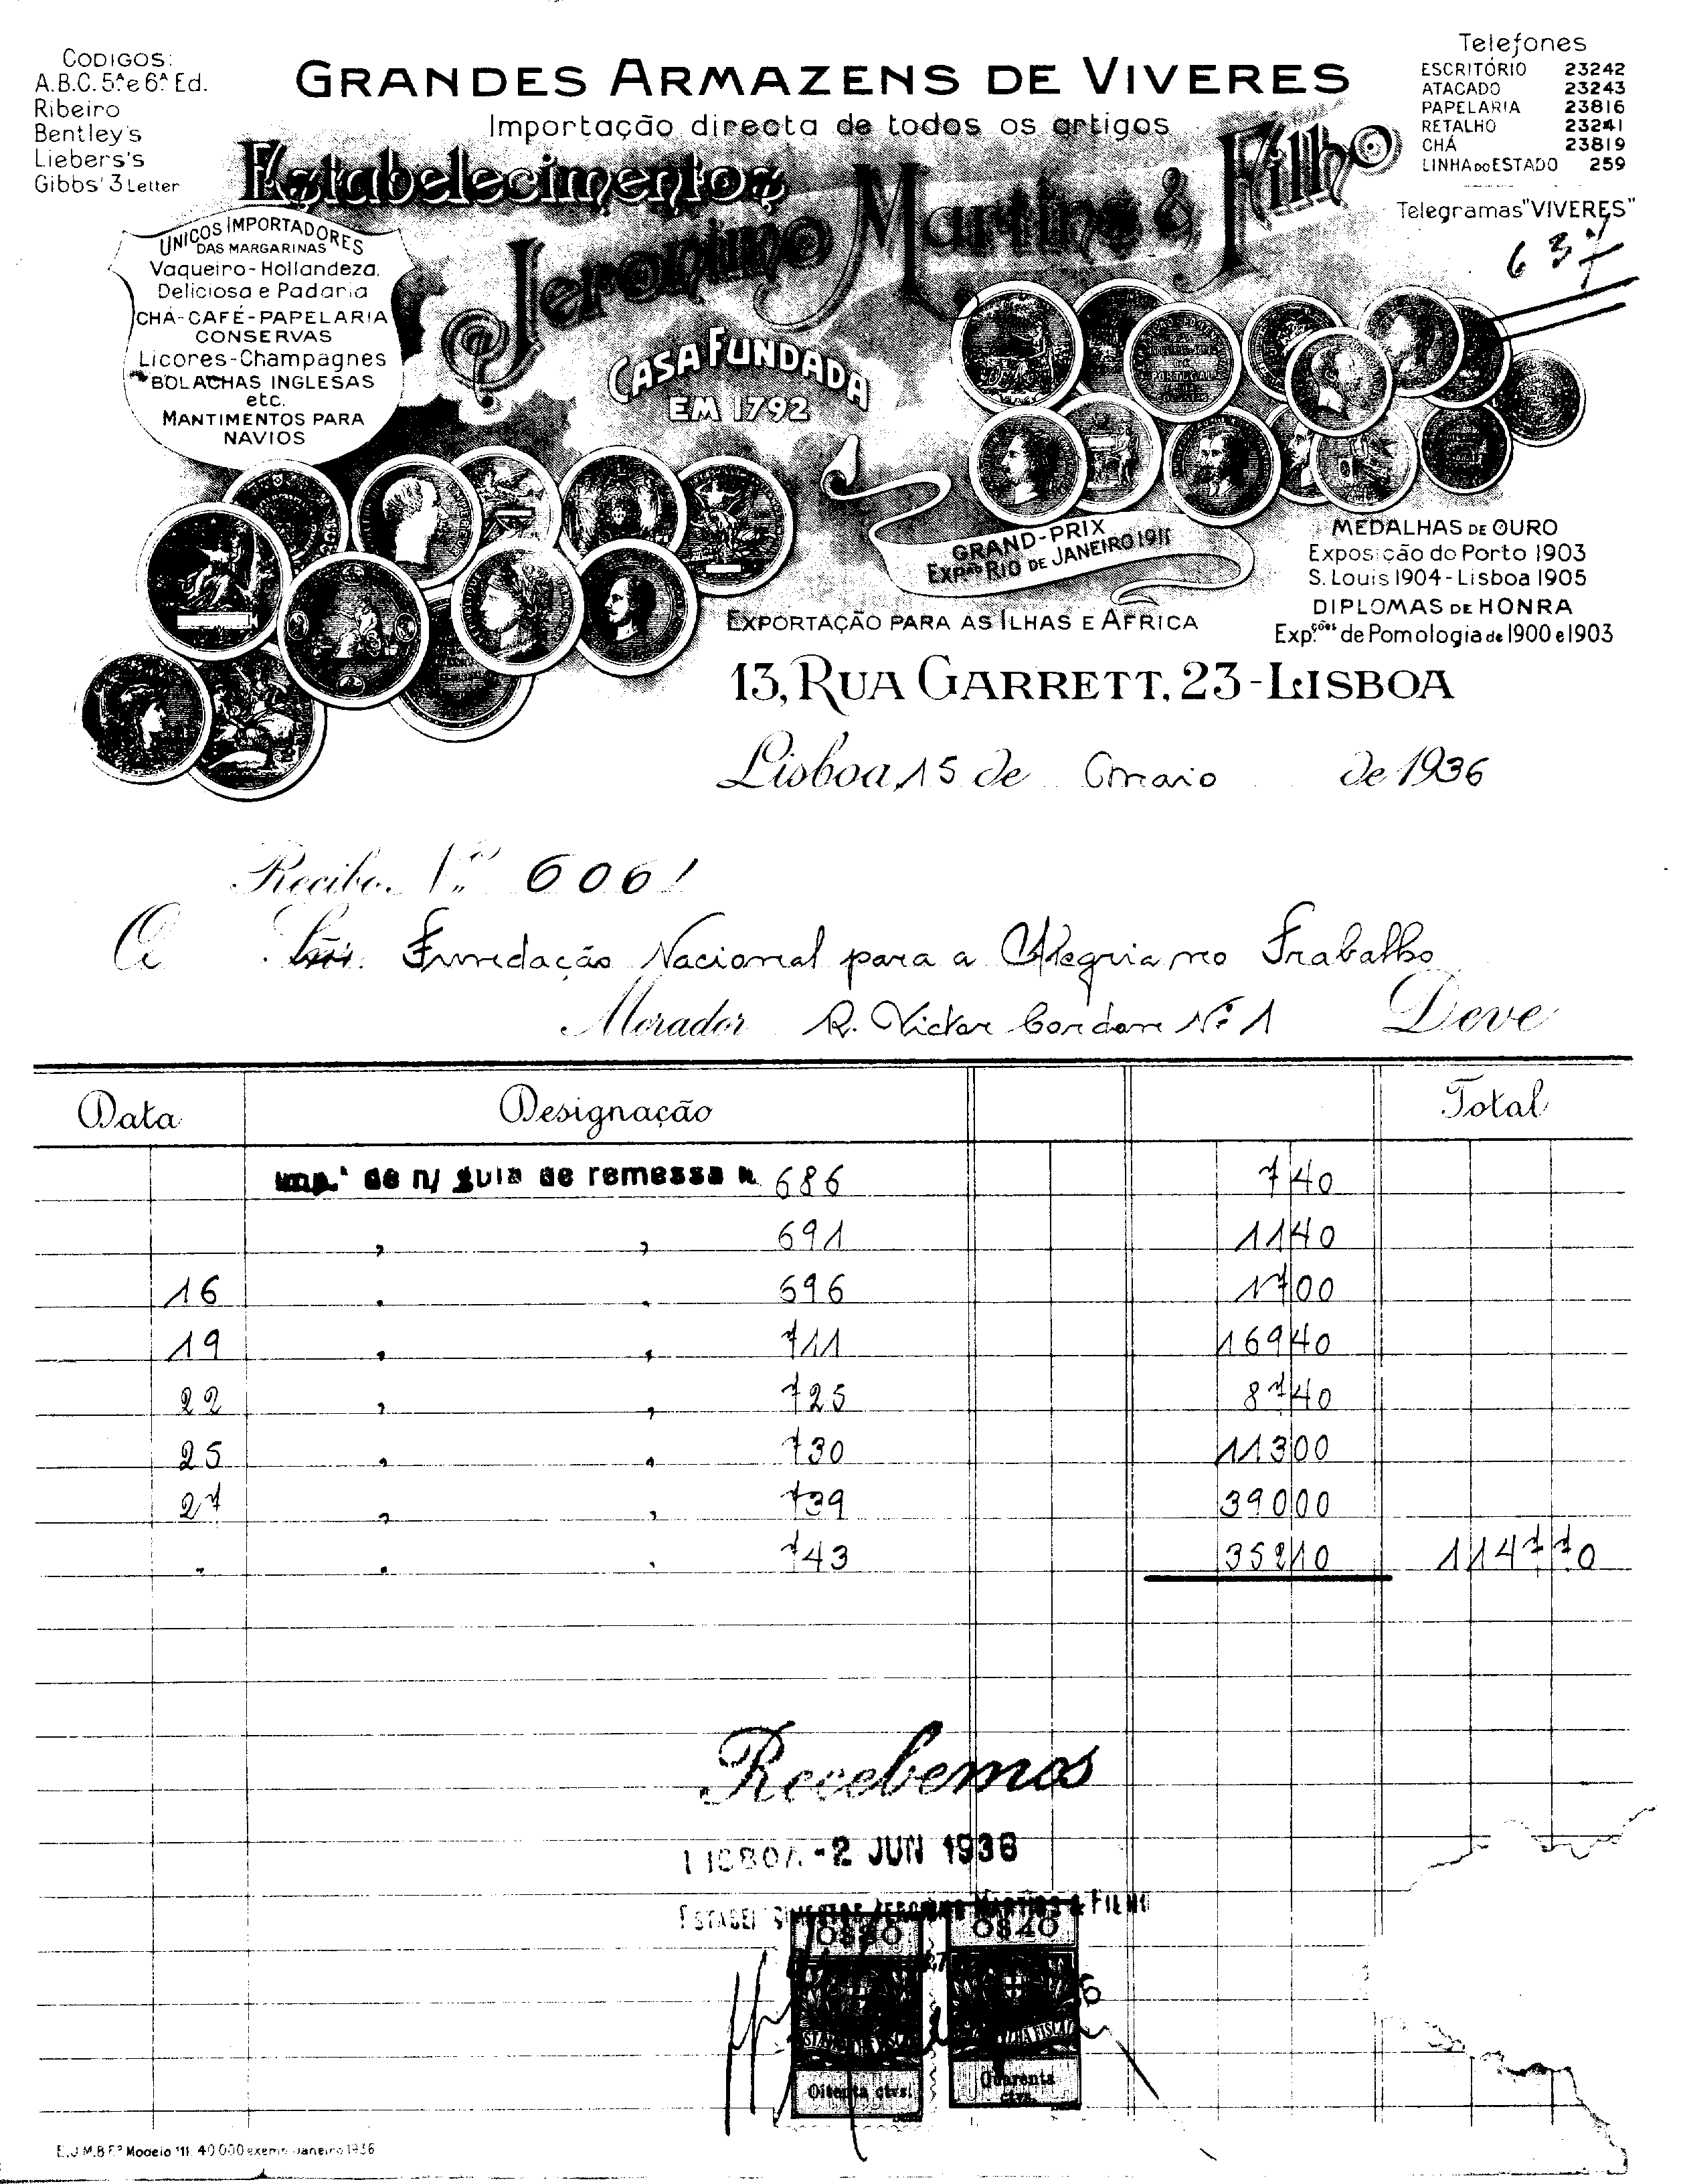 CODIGOS:
A.B.C. 5ª e 6ª Ed.
Ribeiro
Bentley's
Liebers's
Gibbs' 3 Letter
GRANDES ARMAZENS DE VIVERES
Importação directa de todos os artigos
Estabelecimentos
Jeronimo Martins & Filho
CASA FUNDADA
EM 1792
Telefones
ESCRITÓRIO 23242
ATACADO 23243
PAPELARIA 23816
RETALHO 23241
CHÁ 23819
LINHA DO ESTADO 259
Telegramas "VIVERES"
637
UNICOS IMPORTADORES
DAS MARGARINAS
Vaqueiro-Hollandeza,
Deliciosa e Padaria
CHÁ-CAFÉ-PAPELARIA
CONSERVAS
Licores-Champagnes
BOLACHAS INGLESAS
etc.
MANTIMENTOS PARA
NAVIOS
GRAND-PRIX
EXPÃO RIO DE JANEIRO 1911
MEDALHAS DE OURO
Exposição do Porto 1903
S. Louis 1904-Lisboa 1905
DIPLOMAS DE HONRA
Exp.ções de Pomologia de 1900 e 1903
EXPORTAÇÃO PARA AS ILHAS E AFRICA
13, RUA GARRETT, 23-LISBOA
Lisboa, 15 de Maio de 1936
Recibo N.º 6061
A Fundação Nacional para a Alegria no Trabalho
Morador R. Victor Cordon Nº 1 Deve
Data Designação Total
Imp.ª de n/ guia de remessa n. 686 7 40
, , 691 11 40
16 " " 696 17 00
19 " " 711 169 40
22 " " 725 87 40
25 " " 730 113 00
27 " " 739 390 00
" " " 743 352 10 1147 70
Recebemos
LISBOA -2 JUN 1936
ESTABELECIMENTOS JERONIMO MARTINS & FILHO
0$80 0$40
ESTAMPILHA FISCAL
Oitenta ctvs. Quarenta
ctvs.
E.J.M.B.Fº Modelo 11. 40.000 exemp. Janeiro 1936